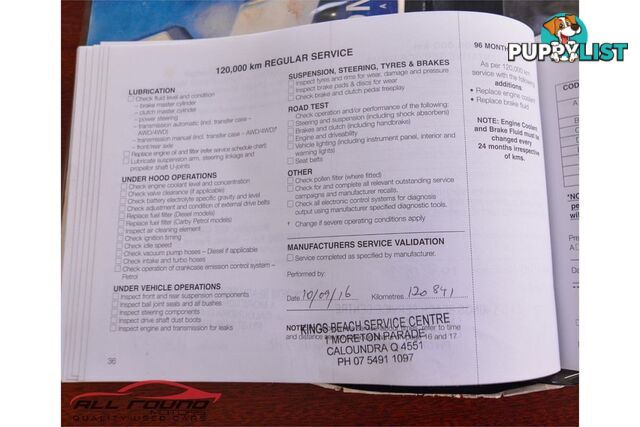 PUPPYLIST
120,000 km REGULAR SERVICE
LUBRICATION
Check fluid level and condition
- brake master cylinder
- clutch master cylinder
- power steering
- transmission automatic (incl. transfer case -
AWD/4WD)
- transmission manual (incl. transfer case – AWD/4WD)†
- front/rear axle
Replace engine oil and filter (refer service schedule chart)
Lubricate suspension arm, steering linkage and
propellor shaft U-joints
UNDER HOOD OPERATIONS
Check engine coolant level and concentration
Check valve clearance (if applicable)
Check battery electrolyte specific gravity and level
Check adjustment and condition of external drive belts
Replace fuel filter (Diesel models)
Replace fuel filter (Carby Petrol models)
Inspect air cleaning element
Check ignition timing
Check idle speed
Check vacuum pump hoses – Diesel if applicable
Check intake and turbo hoses
Check operation of crankcase emission control system –
Petrol
UNDER VEHICLE OPERATIONS
Inspect front and rear suspension components
Inspect ball joint seals and all bushes
Inspect steering components
Inspect drive shaft dust boots
Inspect engine and transmission for leaks
36
SUSPENSION, STEERING, TYRES & BRAKES
Inspect tyres and rims for wear, damage and pressure
Inspect brake pads & discs for wear
Check brake and clutch pedal freeplay
ROAD TEST
Check operation and/or performance of the following:
Steering and suspension (including shock absorbers)
Brakes and clutch (including handbrake)
Engine and driveability
Vehicle lighting (including instrument panel, interior and
warning lights)
Seat belts
OTHER
Check pollen filter (where fitted)
Check for and complete all relevant outstanding service
campaigns and manufacturer recalls.
Check all electronic control systems for diagnosis
output using manufacturer specified diagnostic tools.
† Change if severe operating conditions apply
MANUFACTURERS SERVICE VALIDATION
Service completed as specified by manufacturer.
Performed by:
Date 10/09/16 Kilometres 120841
NOTE
refer to time
and distance 16 and 17
KINGS BEACH SERVICE CENTRE
1 MORETON PARADE
CALOUNDRA Q 4551
PH 07 5491 1097
96 MONTH
As per 120,000 km
service with the following
additions:
• Replace engine coolant
• Replace brake fluid
NOTE: Engine Coolant
and Brake Fluid must be
changed every
24 months irrespective
of kms.
ALL ROUND
QUALITY USED CARS